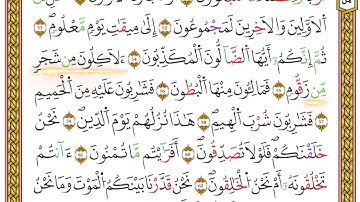 ٱلْأَوَّلِينَ وَٱلْأَخِرِينَ لَمَجْمُوعُونَ إِلَىٰ مِيقَٰتِ يَوْمٍ مَّعْلُومٍ
ثُمَّ إِنَّكُمْ أَيُّهَا ٱلضَّآلُّونَ ٱلْمُكَذِّبُونَ لَأَكِلُونَ مِن شَجَرٍ
مِّن زَقُّومٍ فَمَالِـُٔونَ مِنْهَا ٱلْبُطُونَ فَشَٰرِبُونَ عَلَيْهِ مِنَ ٱلْحَمِيمِ
فَشَٰرِبُونَ شُرْبَ ٱلْهِيمِ هَٰذَا نُزُلُهُمْ يَوْمَ ٱلدِّينِ نَحْنُ
خَلَقْنَٰكُمْ فَلَوْلَا تُصَدِّقُونَ أَفَرَءَيْتُم مَّا تُمْنُونَ ءَأَنتُمْ
تَخْلُقُونَهُۥٓ أَمْ نَحْنُ ٱلْخَٰلِقُونَ نَحْنُ قَدَّرْنَا بَيْنَكُمُ ٱلْمَوْتَ وَمَا نَحْنُ